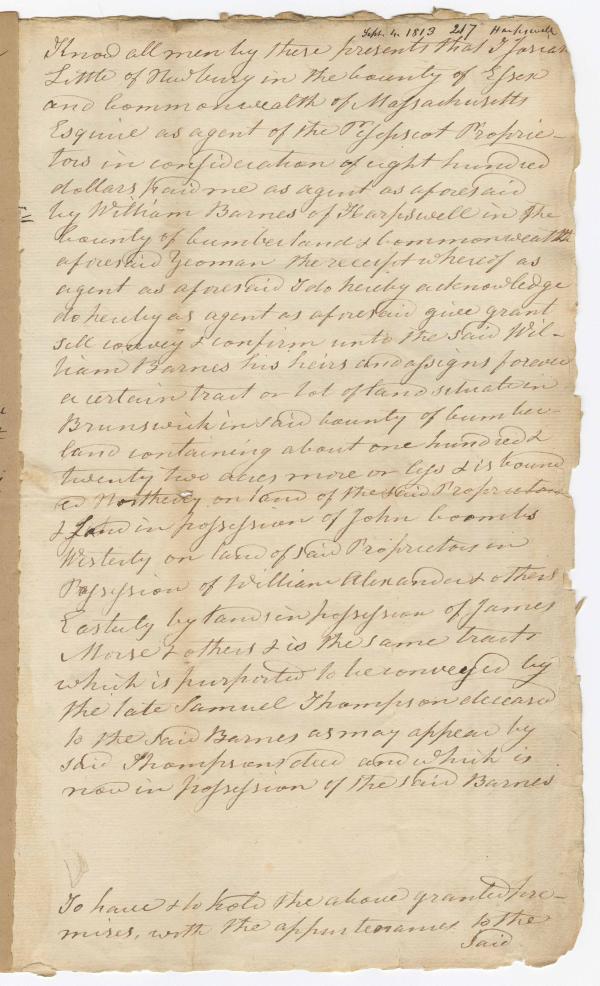 Sept. 4. 1813 217 Harpswell
Know all men by these presents that I Josiah
Little of Newbury in the County of Essex
and Commonwealth of Massachusetts
Esquire as agent of the Pejepscot Proprie-
tors in consideration of eight hundred
dollars paid me as agent as aforesaid
by William Barnes of Harpswell in the
County of Cumberland & Commonwealth
aforesaid Yeoman the receipt whereof as
agent as aforesaid I do hereby acknowledge
do hereby as agent as aforesaid give grant
sell convey & confirm unto the said Wil-
liam Barnes his heirs and assigns forever
a certain tract or lot of land situate in
Brunswick in said County of Cumber-
land containing about one hundred &
twenty two acres more or less & is bound
ed Northerly on land of the said Proprietors
& Land in possession of John Coombs
Westerly on land of said Proprietors in
Possession of William Alexander & others
Easterly by lands in possession of James
Morse & others & is the same tract
which is purported to be conveyed by
the late Samuel Thompson deceased
to the said Barnes as may appear by
said Thompsons deed and which is
now in possession of the said Barnes
To have & to hold the above granted pre-
mises, with the appurtenances to the
Said